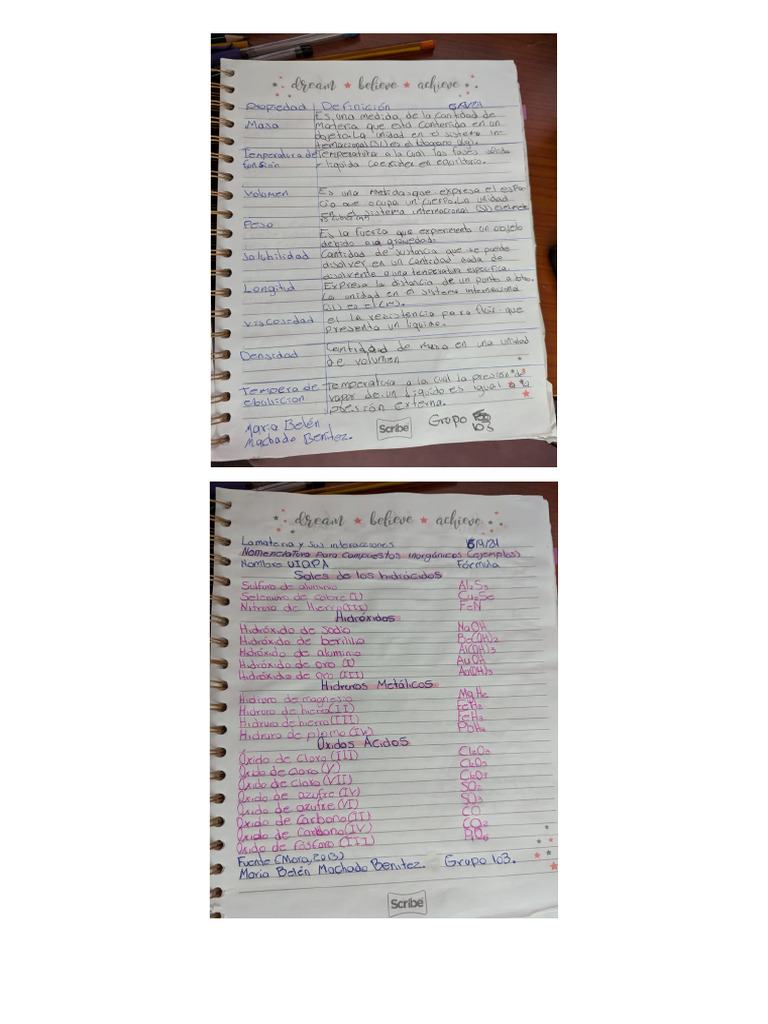 dream ★ believe ★ achieve
Propiedad Definición
Masa
Es una medida de la cantidad de
materia que está contenida en un
objeto. La unidad en el sistema in-
ternacional (SI) es el kilogramo (kg).
Temperatura de
fusión
Temperatura a la cual las fases sólida
líquida coexisten en equilibrio.
Volumen
Es una medida que expresa el espa-
cio que ocupa un cuerpo. La unidad
en el sistema internacional (SI)
Peso
Es la fuerza que experimenta un objeto
debido a la gravedad.
Solubilidad
Cantidad de sustancia que se puede
disolver en un cantidad dada de
disolvente a una temperatura específica.
Longitud
Expresa la distancia de un punto a otro.
La unidad en el sistema internacional
(SI) es el
Viscosidad
el la resistencia para fluir que
presenta un líquido.
Densidad
Cantidad de masa en una unidad
de volumen
Tempera de
ebullición
Temperatura a la cual la presión de
vapor de un líquido es igual a la
presión externa.
María Belén
Machado Benítez.
Scribe
Grupo
103
dream ★ believe ★ achieve
La materia y sus interacciones
Nomenclatura para Compuestos Inorgánicos (ejemplos)
Nombre UIQPA Fórmula
Sales de los hidrácidos
Sulfuro de aluminio Al₂S₃
Selenuro de cobre (I) Cu₂Se
Nitruro de hierro (III) FeN
Hidróxidos
Hidróxido de sodio NaOH
Hidróxido de berilio Be(OH)₂
Hidróxido de aluminio Al(OH)₃
Hidróxido de oro (I) AuOH
Hidróxido de oro (III) Au(OH)₃
Hidruros Metálicos
Hidruro de magnesio MgH₂
Hidruro de hierro (II) FeH₂
Hidruro de hierro (III) FeH₃
Hidruro de plomo (IV) PbH₄
Óxidos Ácidos
Óxido de cloro (III) Cl₂O₃
Óxido de cloro (V) Cl₂O₅
Óxido de cloro (VII) Cl₂O₇
Óxido de azufre (IV) SO₂
Óxido de azufre (VI) SO₃
Óxido de Carbono (II) CO
Óxido de Carbono (IV) CO₂
Óxido de fósforo (III)
Fuente (Mora, 2013)
María Belén Machado Benítez. Grupo 103.
Scribe